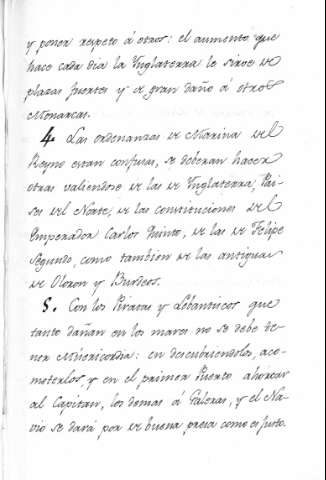 y poner respeto á otros: el aumento que
hace cada dia la Ynglaterra le sirve de
plazas fuertes y de gran daño á otros
Monarcas.
4. Las ordenanzas de Marina del
Reyno estan confusas, se deberan hacer
otras valiendose de las de Ynglaterra, Pai-
ses del Norte, de las constituciones del
Emperador Carlos Quinto, de las de Felipe
Segundo, como tambien de las antiguas
de Oloron y Burdeos.
5. Con los Piratas y Lebanticos que
tanto dañan en los mares no se debe te-
ner Misericordia: en descubriendolos, aco-
meterlos y en el primer Puerto ahorcar
al Capitan, los demas á Galeras, y el Na-
vio se dará por de buena presa como es justo.